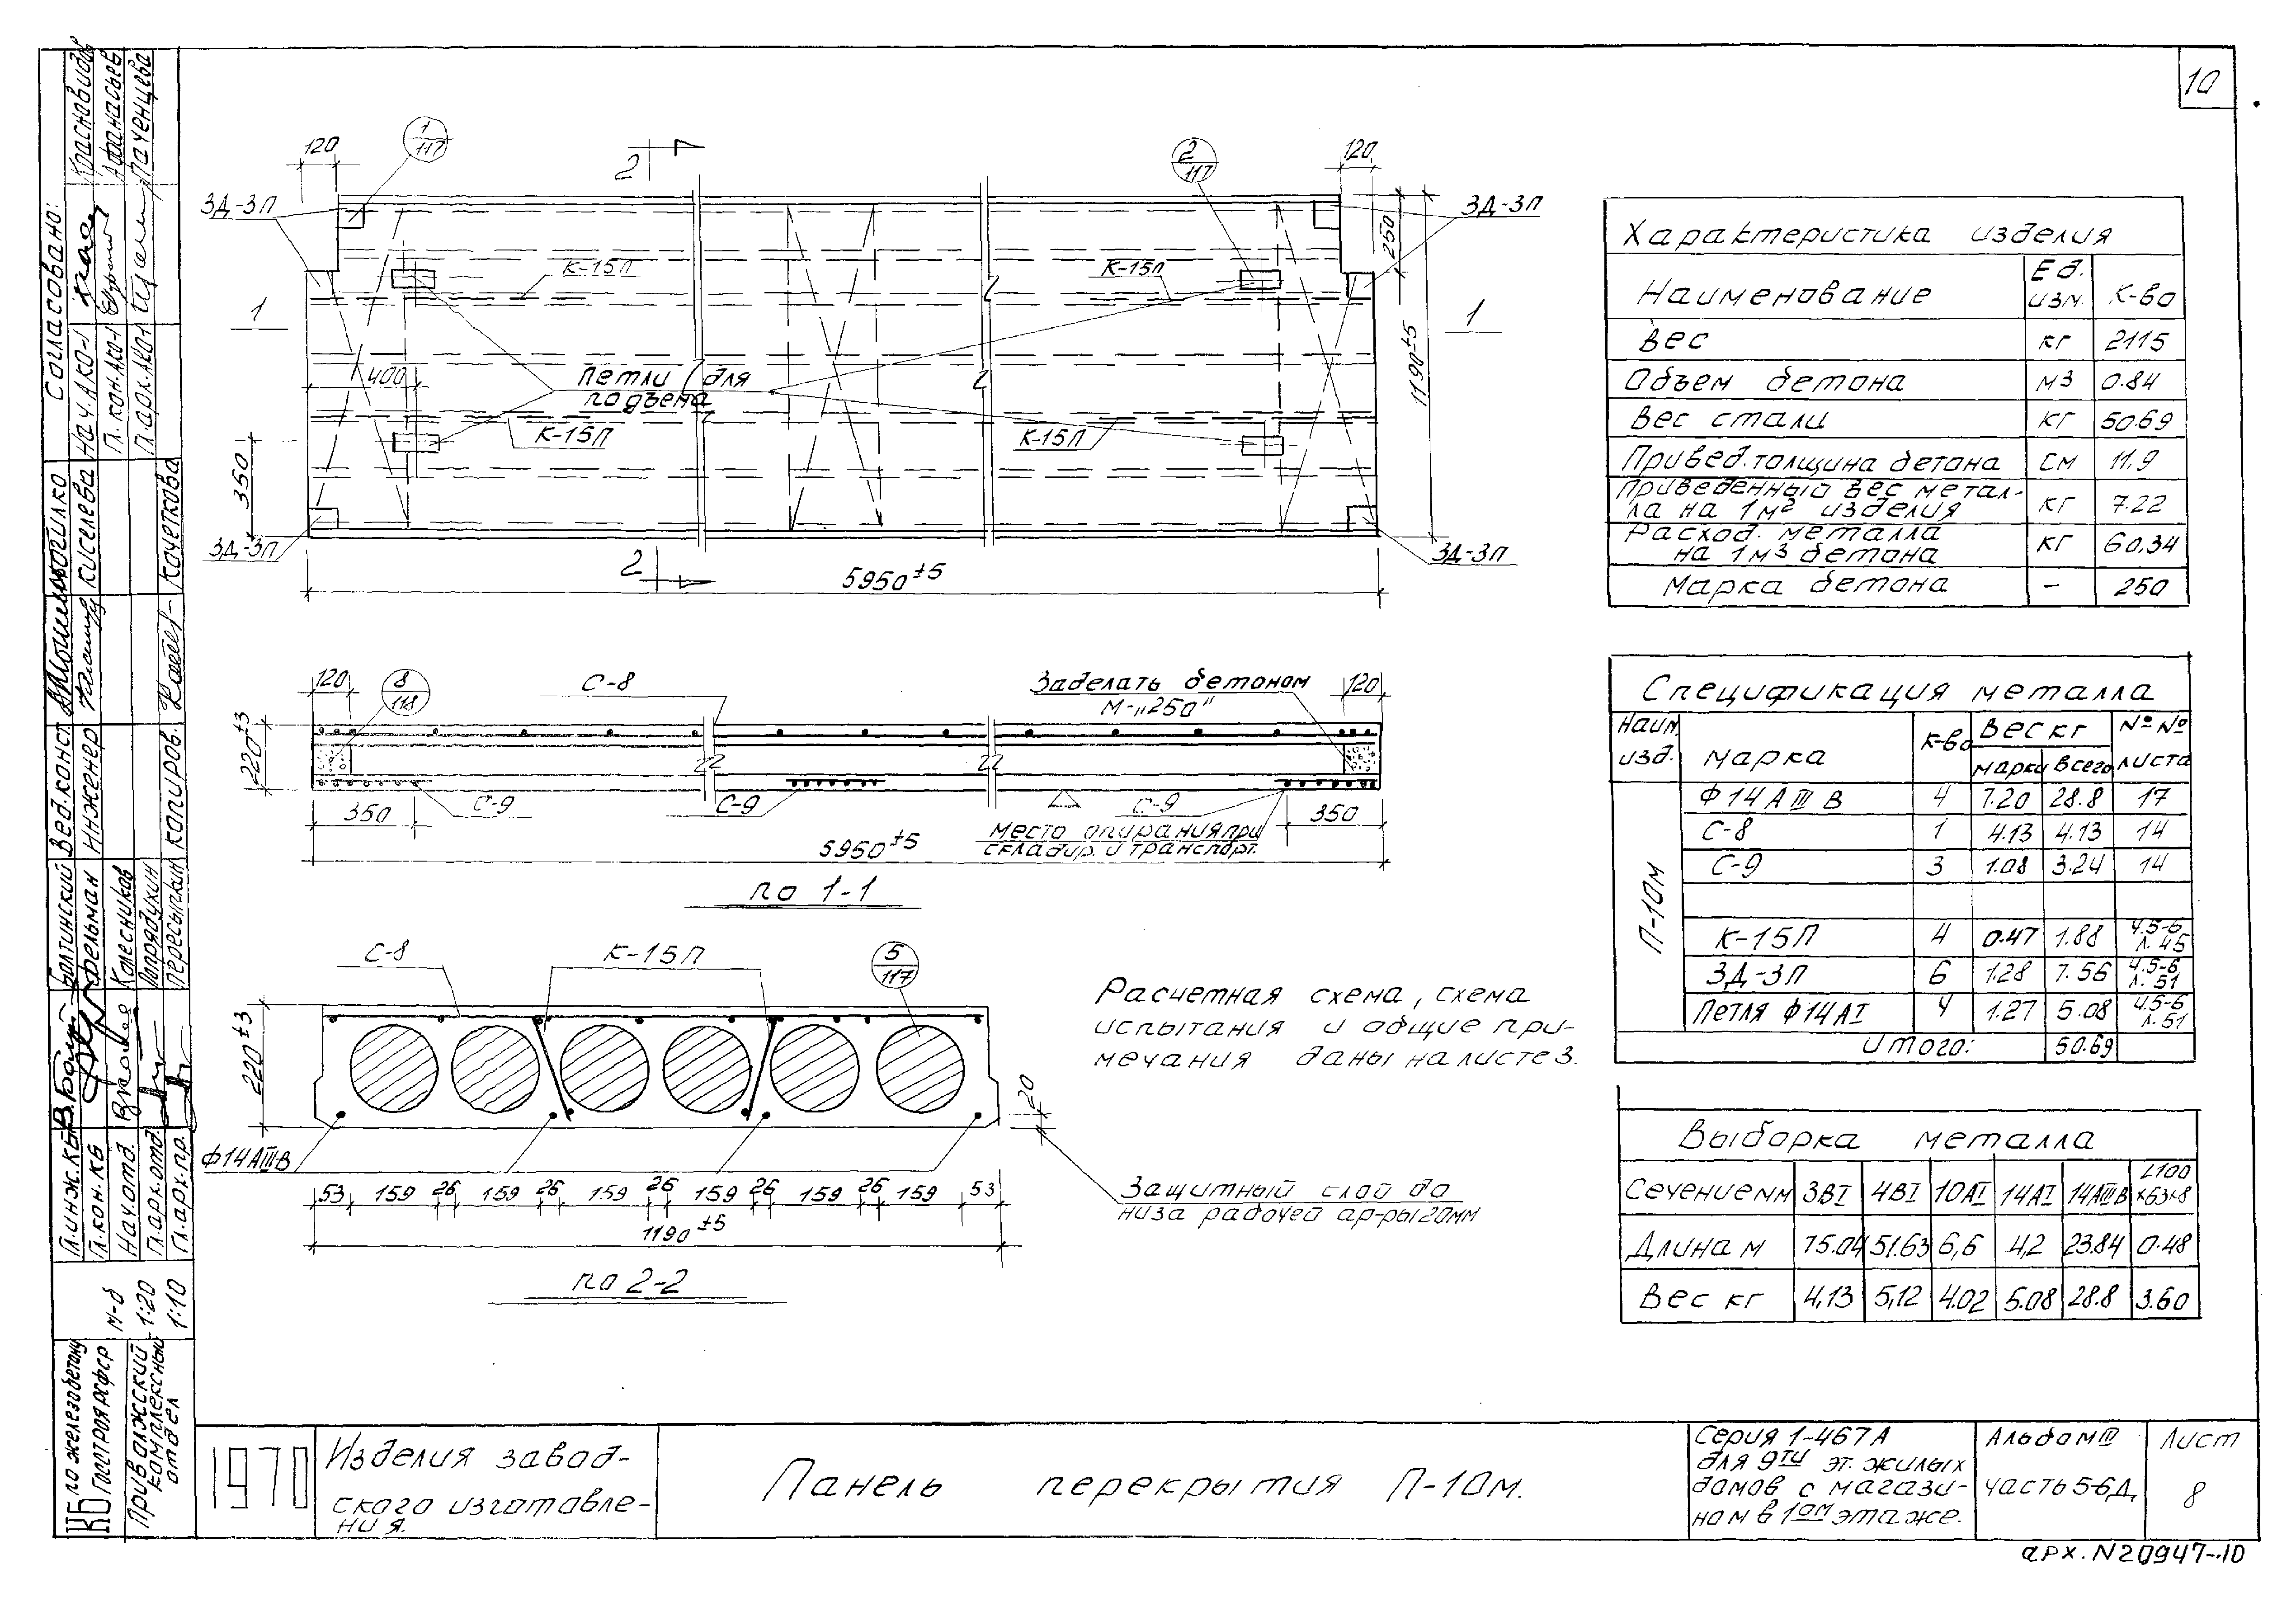 10
120
1
117
2
2
117
120
ЗД-3П
ЗД-3П
250
К-15П
К-15П
1
1
1190±5
400
Петли для
подъема
К-15П
К-15П
350
ЗД-3П
ЗД-3П
2
5950±5
120
8
118
С-8
Заделать бетоном
М-„250"
120
220±3
С-9
С-9
С-9
350
350
Место опирания при
складир. и транспорт.
5950±5
по 1-1
С-8
К-15П
5
117
220±3
20
Ф14АIIIВ
53 159 26 159 26 159 26 159 26 159 26 159 53
1190±5
по 2-2
Защитный слой до
низа рабочей ар-ры 20мм
Расчетная схема, схема
испытания и общие при-
мечания даны на листе 3.
Характеристика изделия
Наименование Ед. изм. К-во
Вес кг 2115
Объем бетона м3 0.84
Вес стали кг 50.69
Привед. толщина бетона см 11.9
Приведенный вес метал-
ла на 1м² изделия кг 7.22
Расход. металла
на 1м3 бетона кг 60.34
Марка бетона – 250
Спецификация металла
Наим. изд. Марка К-во Вес кг №№ листа
марки всего
П-10м
Ф14АIIIВ 4 7.20 28.8 17
С-8 1 4.13 4.13 14
С-9 3 1.08 3.24 14
К-15П 4 0.47 1.88 ч.5-6 л.45
ЗД-3П 6 1.28 7.56 ч.5-6 л.51
Петля Ф14АI 4 1.27 5.08 ч.5-6 л.51
Итого: 50.69
Выборка металла
Сечение мм 3ВI 4ВI 10АI 14АI 14АIIIВ L100×63×8
Длина м 75.04 51.63 6,6 4,2 23.84 0.48
Вес кг 4,13 5,12 4.02 5.08 28.8 3.60
Согласовано:
Нач. АКО-1 Красновидов
Гл. кон. АКО-1 Афанасьев
Гл. арх. АКО-1 Паченцева
Вед. конст. Могилко
Инженер Киселева
Копиров. Кочеткова
Гл. инж. КБ Болтинский
Гл. кон. КБ Фельман
Нач. отд. Колесников
Гл. арх. отд. Попрядухин
Гл. арх. пр. Пересыпкин
М-б
1:20
1:10
КБ по железобетону
Госстроя РСФСР
Приволжский
комплексный
отдел
1970
Изделия завод-
ского изготовле-
ния.
Панель перекрытия П-10м.
Серия 1-467А
для 9ти эт. жилых
домов с магази-
ном в 1ом этаже.
Альбом III
часть 5-6Д,
Лист
8
арх. N20947-10